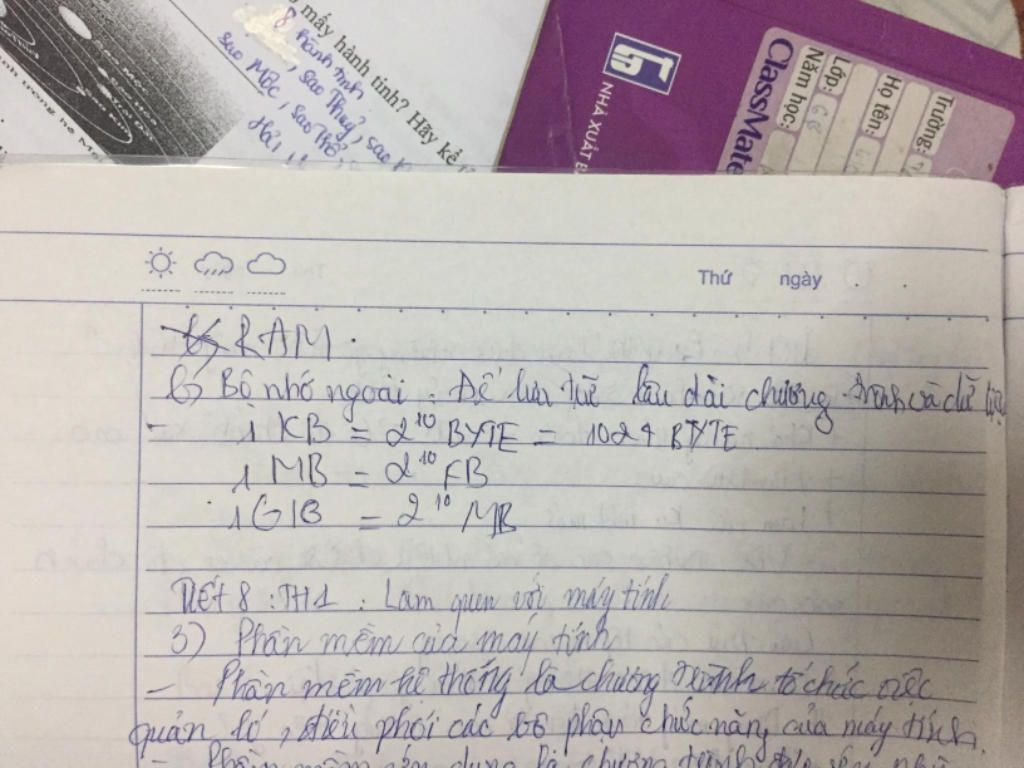 mấy hành tinh? Hãy kể
8 hành tinh
sao Thuỷ, sao K
sao Mộc, sao Thổ,
Hải
NHÀ XUẤT B
ClassMate
Trường:
Họ tên:
Lớp: 6
Năm học:
Thứ ngày
b) RAM.
b) Bộ nhớ ngoài. Để lưu trữ lâu dài chương trình và dữ liệu
- 1 KB = 2^10 BYTE = 1024 BYTE
1 MB = 2^10 KB
1 GB = 2^10 MB
TIẾT 8: TH1. Làm quen với máy tính
3) Phần mềm của máy tính
- Phần mềm hệ thống là chương trình tổ chức việc
quản lí, điều phối các bộ phận chức năng của máy tính.
- Phần mềm ứng dụng là chương trình